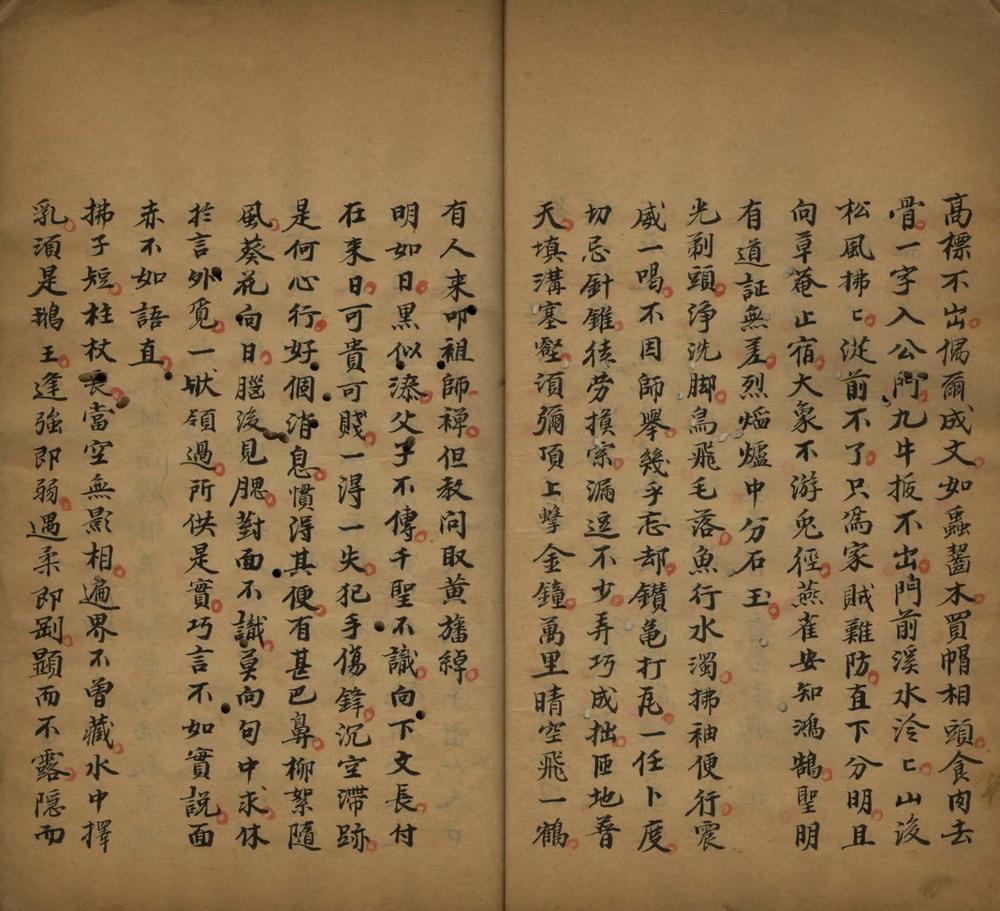 高標不出偶爾成文如蟲蠹木買帽相頭食肉去
骨一字入公門九牛扳不出門前溪水泠〻山後
松風拂〻從前不了只爲家賊難防直下分明且
向草菴止宿大象不游兔徑燕雀安知鴻鵠聖明
有道証無差烈熖爐中分石玉
光剃頭淨洗脚鳥飛毛落魚行水濁拂袖便行震
威一喝不因師舉幾乎忘却鑚龜打瓦一任卜度
切忌針錐徒劳摸𡩋漏逗不少弄巧成拙匝地普
天填溝塞壑須彌頂上擊金鐘萬里晴空飛一鶴
有人来叩祖師禪但教问取黄旛綽
明如日黒似漆父子不傳千聖不識向下文長付
在来日可貴可賤一得一失犯手傷鋒沉空滯跡
是何心行好個消息慣得其便有甚巴鼻柳絮隨
風葵花向日腦後見腮對面不識莫向句中求休
於言外覓一狀領過所供是實巧言不如實説面
赤不如語直
拂子短柱杖長當空無影相遍界不曽藏水中擇
乳須是鵝王逢強即弱遇柔即剛顕而不露隠而